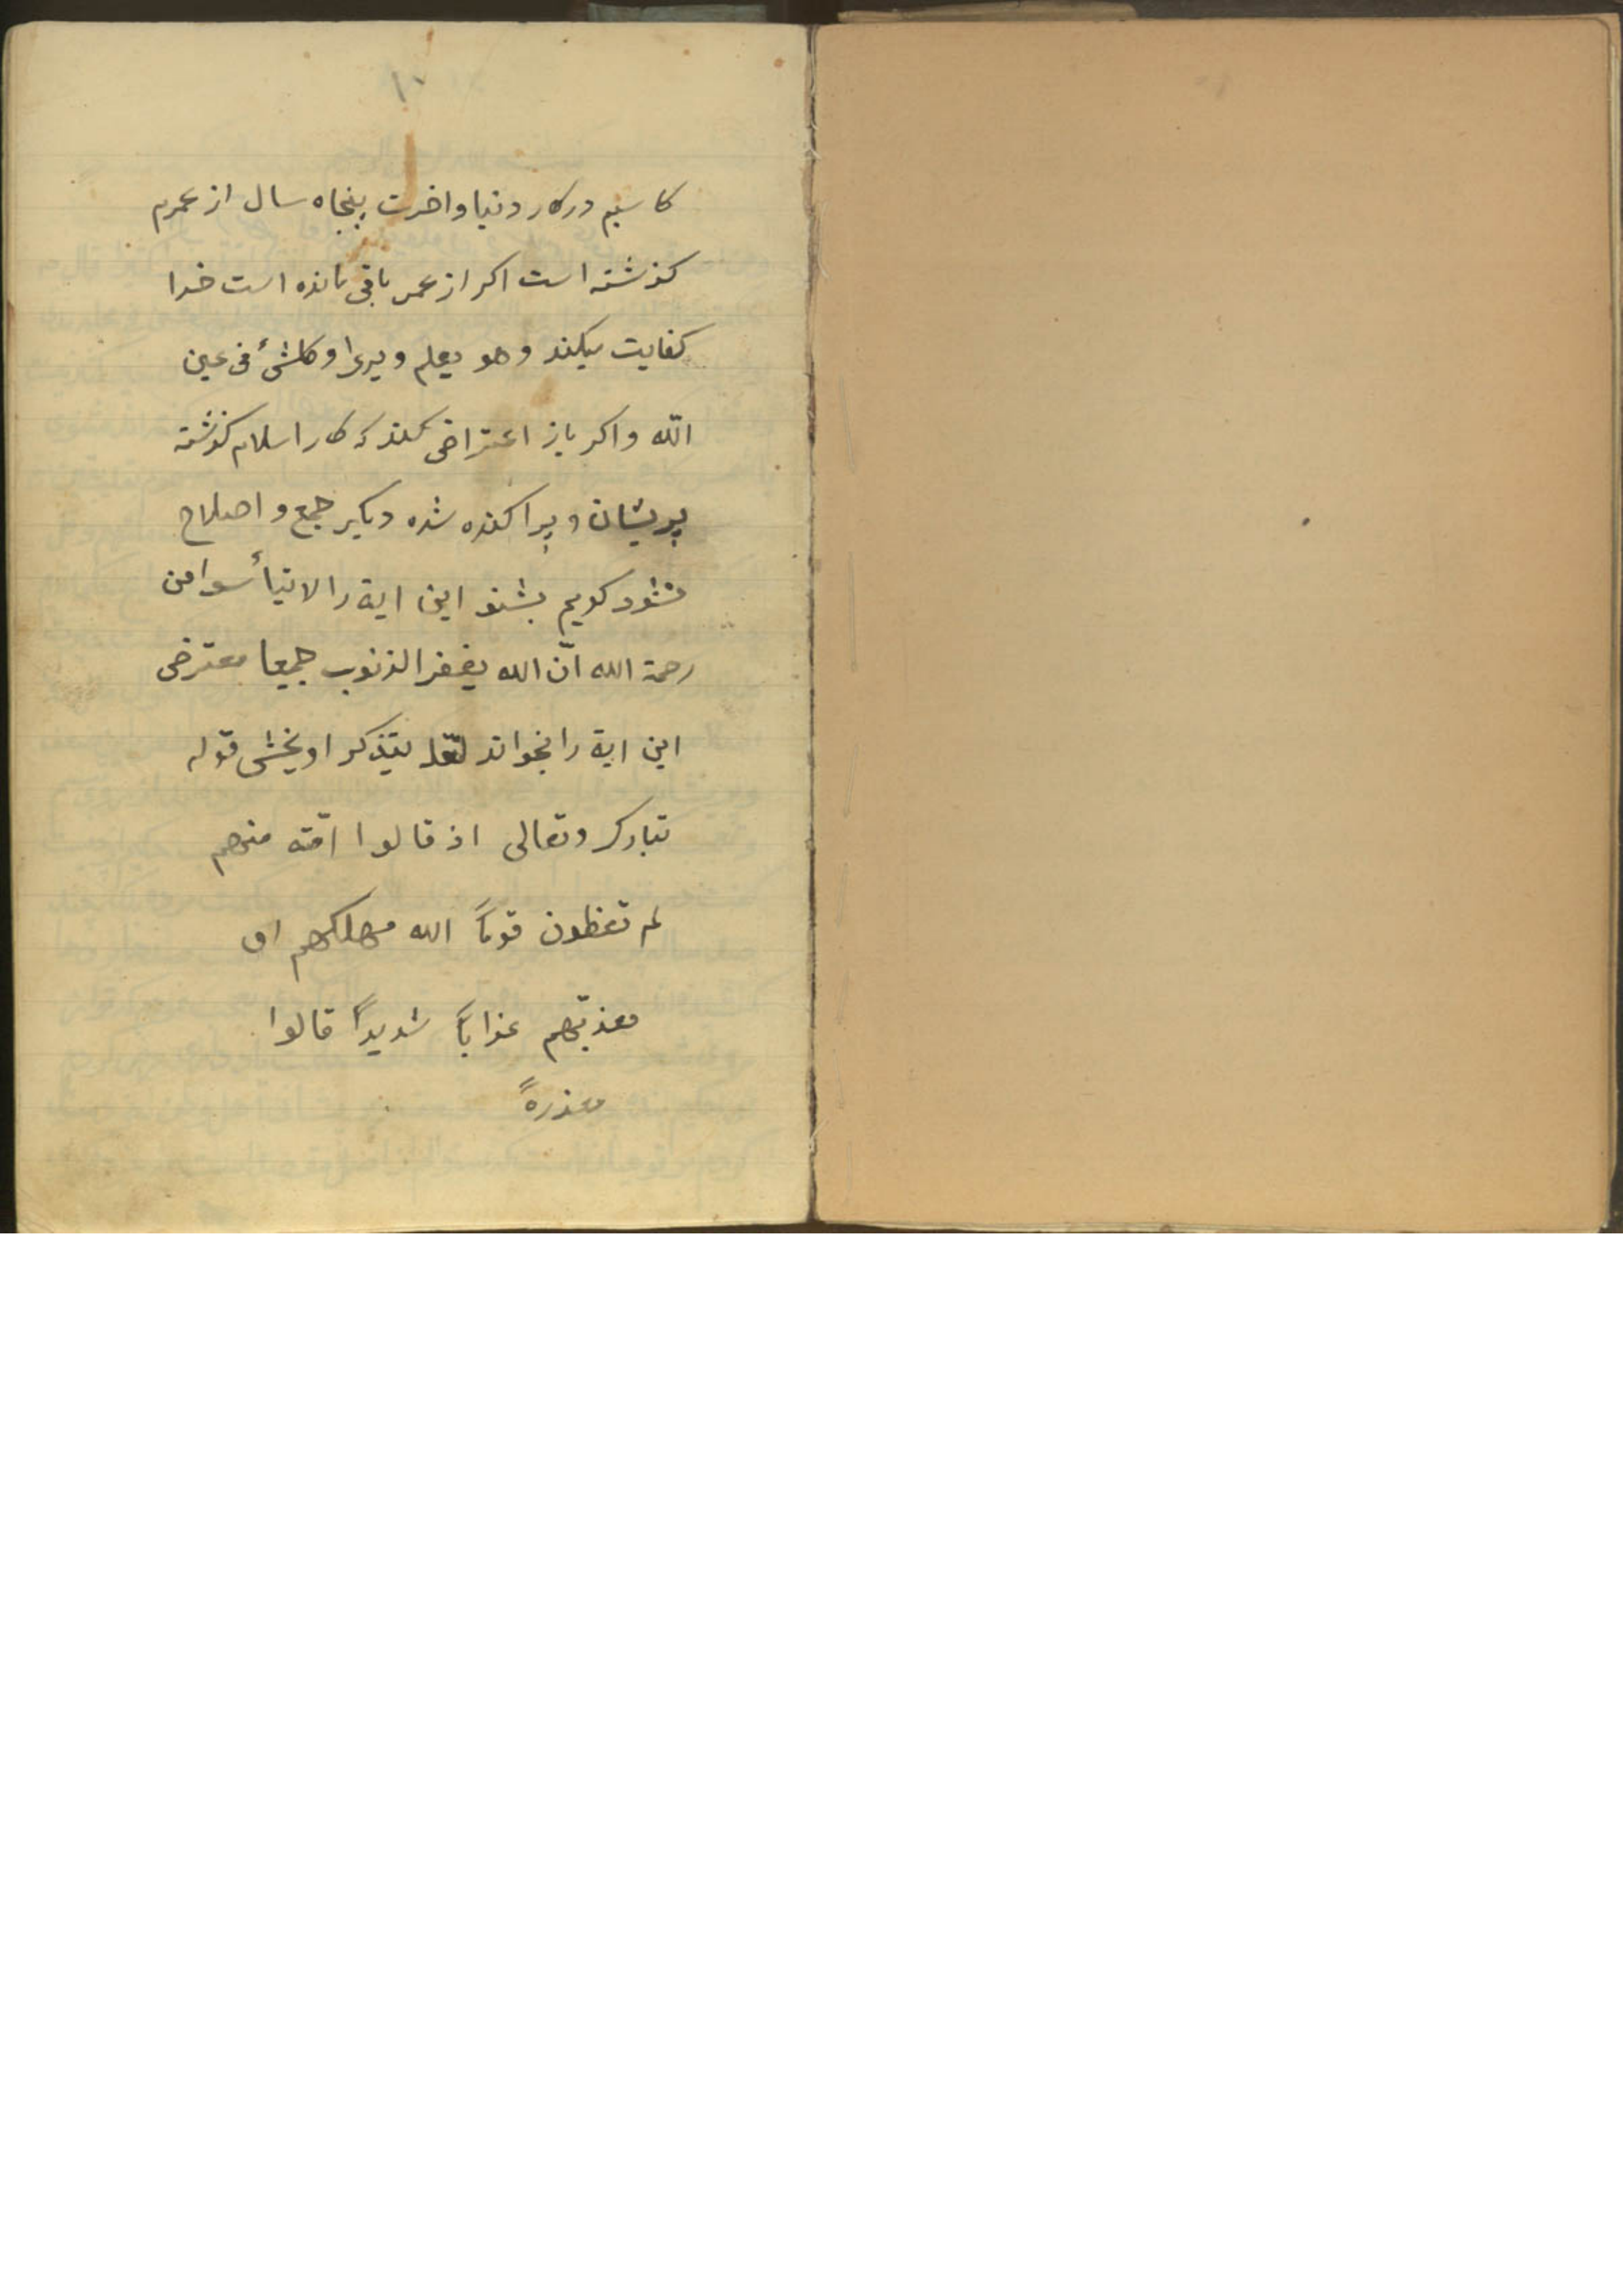 ۱۰
کاسبم درکار دنیا واخرت پنجاه سال از عمرم
کذشته است اکر از عمر باقی مانده است خدا
کفایت میکند وهو یعلم ویری وکلشئ فی عین
الله واکر باز اعتراض کند که کار اسلام کذشته
پریشان و پراکنده شده دیکر جمع و اصلاح
نشود کویم بشنو این ایة را لاتیأسوا من
رحمة الله انّ الله یغفر الذنوب جمیعا معترض
این ایة را بخواند لعله یتذکر اویخشی قوله
تبارک وتعالی اذ قالوا امّة منهم
لم تعظون قوماً الله مهلکهم او
معذبهم عذاباً شدیداً قالوا
معذرةً